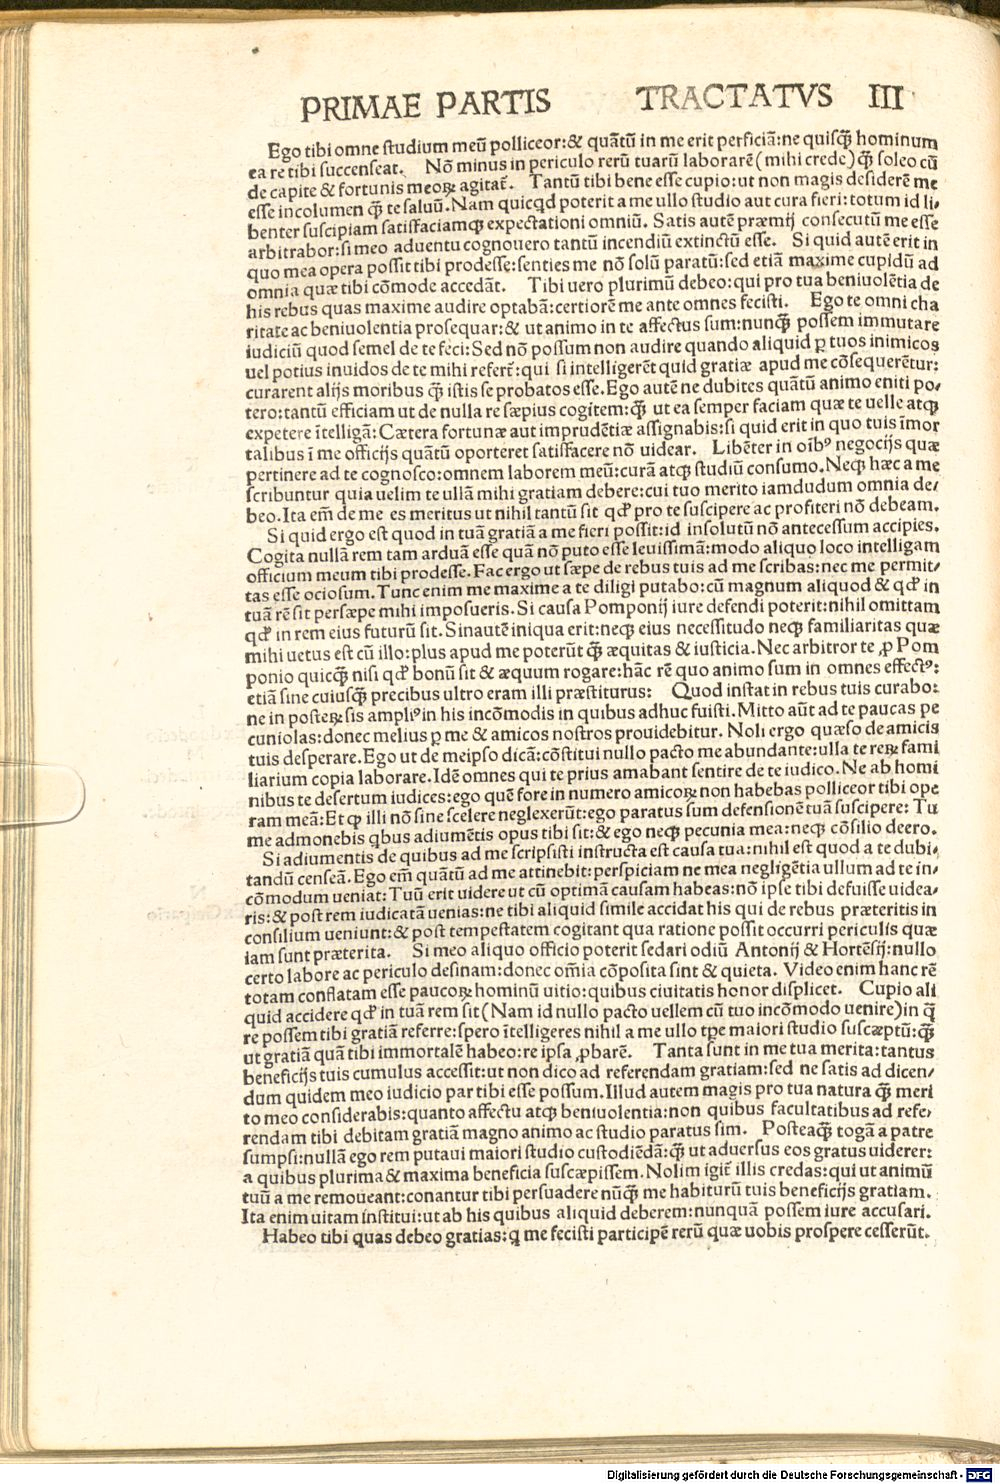 PRIMAE PARTIS TRACTATVS III
Ego tibi omne studium meū polliceor:& quātū in me erit perficiā:ne quisq̄ hominum
ea re tibi succenseat. Nō minus in periculo rerū tuarū laborarē(mihi crede)q̄ soleo cū
de capite & fortunis meoꝝ agitat̄. Tantū tibi bene esse cupio:ut non magis desiderē me
esse incolumen q̄ te saluū.Nam quicqd poterit a me ullo studio aut cura fieri:totum id li-
benter suscipiam satisfaciamqꝫ expectationi omniū. Satis autē præmij consecutū me esse
arbitrabor:si meo aduentu cognouero tantū incendiū extinctū esse. Si quid autē erit in
quo mea opera possit tibi prodesse:senties me nō solū paratū:sed etiā maxime cupidū ad
omnia quæ tibi cōmode accedāt. Tibi uero plurimū debeo:qui pro tua beniuolētia de
his rebus quas maxime audire optabā:certiorē me ante omnes fecisti. Ego te omni cha
ritate ac beniuolentia prosequar:& ut animo in te affectus sum:nunq̄ possem immutare
iudiciū quod semel de te feci:Sed nō possum non audire quando aliquid ꝑ tuos inimicos
uel potius inuidos de te mihi refert̄:qui si intelligerēt quid gratiæ apud me cōsequerētur:
curarent alijs moribus q̄ istis se probatos esse.Ego autē ne dubites quātū animo eniti po-
tero:tantū efficiam ut de nulla re sæpius cogitem:q̄ ut ea semper faciam quæ te uelle atqꝫ
expetere ītelligā:Cætera fortunæ aut imprudētiæ assignabis:si quid erit in quo tuis īmor
talibus ī me officijs quātū oporteret satisfacere nō uidear. Libēter in oībꝰ negocijs quæ
pertinere ad te cognosco:omnem laborem meū:curā atqꝫ studiū consumo.Neqꝫ hæc a me
scribuntur quia uelim te ullā mihi gratiam debere:cui tuo merito iamdudum omnia de-
beo.Ita em̄ de me es meritus ut nihil tantū sit qd̓ pro te suscipere ac profiteri nō debeam.
Si quid ergo est quod in tuā gratiā a me fieri possit:id insolutū nō antecessum accipies.
Cogita nullā rem tam arduā esse quā nō puto esse leuissimā:modo aliquo loco intelligam
officium meum tibi prodesse.Fac ergo ut sæpe de rebus tuis ad me scribas:nec me permit-
tas esse ociosum.Tunc enim me maxime a te diligi putabo:cū magnum aliquod & qd̓ in
tuā rē sit persæpe mihi imposueris.Si causa Pomponij iure defendi poterit:nihil omittam
qd̓ in rem eius futurū sit.Sinautē iniqua erit:neqꝫ eius necessitudo neqꝫ familiaritas quæ
mihi uetus est cū illo:plus apud me poterūt q̄ æquitas & iusticia.Nec arbitror te ꝓ Pom
ponio quicq̄ nisi qd̓ bonū sit & æquum rogare:hāc rē quo animo sum in omnes effectꝰ:
etiā sine cuiusq̄ precibus ultro eram illi præstiturus: Quod instat in rebus tuis curabo:
ne in posteꝝ sis ampliꝰ in his incōmodis in quibus adhuc fuisti.Mitto aūt ad te paucas pe
cuniolas:donec melius ꝑ me & amicos nostros prouidebitur.Noli ergo quæso de amicis
tuis desperare.Ego ut de meipso dicā:cōstitui nullo pacto me abundante:ulla te reꝝ fami
liarium copia laborare.Idē omnes qui te prius amabant sentire de te iudico.Ne ab homi
nibus te desertum iudices:ego quē fore in numero amicoꝝ non habebas polliceor tibi ope
ram meā:Et ꝙ illi nō sine scelere neglexerūt:ego paratus sum defensionē tuā suscipere:Tu
me admonebis qbus adiumētis opus tibi sit:& ego neqꝫ pecunia mea:neqꝫ cōsilio deero.
Si adiumentis de quibus ad me scripsisti instructa est causa tua:nihil est quod a te dubi-
tandū censeā.Ego em̄ quātū ad me attinebit:perspiciam ne mea negligētia ullum ad te in-
cōmodum ueniat:Tuū erit uidere ut cū optimā causam habeas:nō ipse tibi defuisse uidea-
ris:& post rem iudicatā uenias:ne tibi aliquid simile accidat his qui de rebus præteritis in
consilium ueniunt:& post tempestatem cogitant qua ratione possit occurri periculis quæ
iam sunt præterita. Si meo aliquo officio poterit sedari odiū Antonij & Hortēsij:nullo
certo labore ac periculo desinam:donec om̄ia cōposita sint & quieta. Video enim hanc rē
totam conflatam esse paucoꝝ hominū uitio:quibus ciuitatis honor displicet. Cupio ali
quid accidere qd̓ in tuā rem sit(Nam id nullo pacto uellem cū tuo incōmodo uenire)in q̄
re possem tibi gratiā referre:spero ītelligeres nihil a me ullo tp̄e maiori studio suscæptū:q̄
ut gratiā quā tibi immortalē habeo:re ipsa ꝓbarē. Tanta sunt in me tua merita:tantus
beneficijs tuis cumulus accessit:ut non dico ad referendam gratiam:sed ne satis ad dicen-
dum quidem meo iudicio par tibi esse possum.Illud autem magis pro tua natura q̄ meri
to meo considerabis:quanto affectu atqꝫ beniuolentia:non quibus facultatibus ad refe-
rendam tibi debitam gratiā magno animo ac studio paratus sim. Posteaq̄ togā a patre
sumpsi:nullā ego rem putaui maiori studio custodiēdā:q̄ ut aduersus eos gratus uiderer:
a quibus plurima & maxima beneficia suscæpissem.Nolim igit̄ illis credas:qui ut animū
tuū a me remoueant:conantur tibi persuadere nūq̄ me habiturū tuis beneficijs gratiam.
Ita enim uitam institui:ut ab his quibus aliquid deberem:nunquā possem iure accusari.
Habeo tibi quas debeo gratias:q me fecisti participē rerū quæ uobis prospere cesserūt.
Digitalisierung gefördert durch die Deutsche Forschungsgemeinschaft - DFG